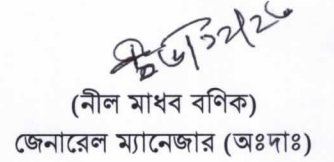 (নীল মাধব বণিক)
জেনারেল ম্যানেজার (অঃদাঃ)